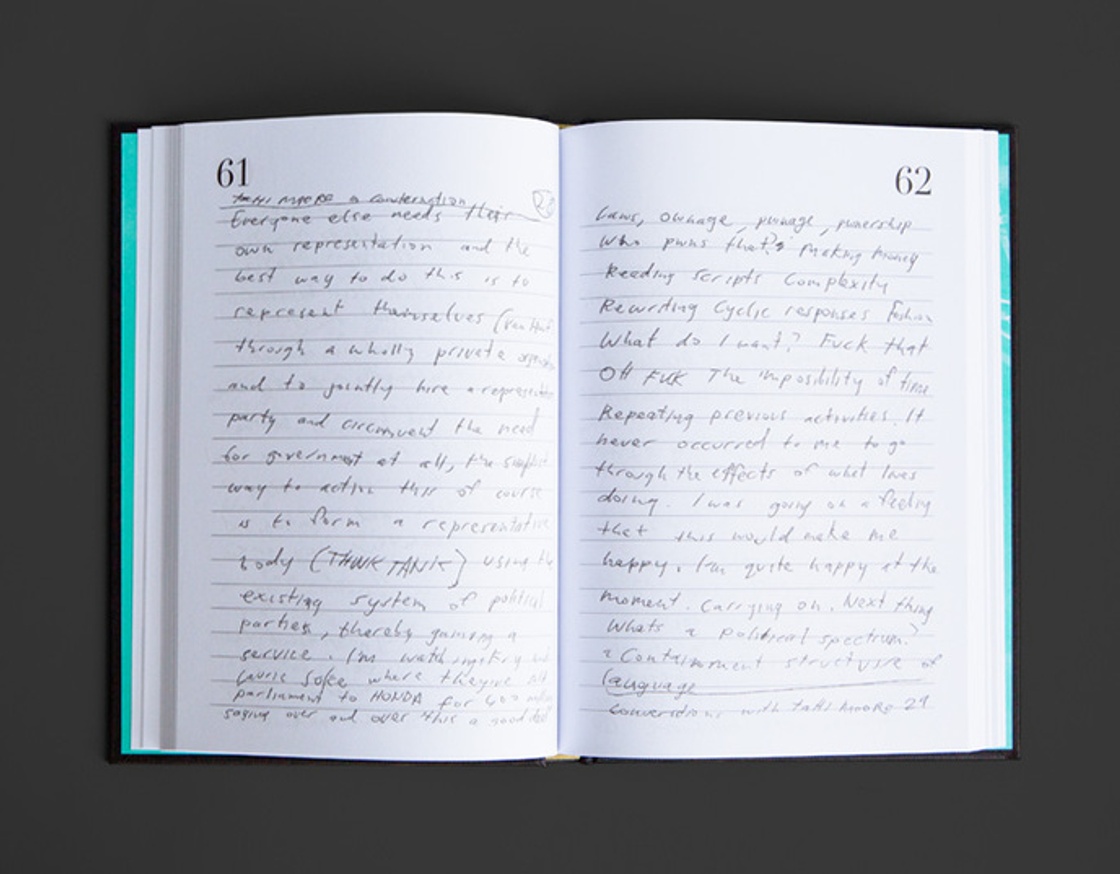 61
tahi moore a conversation
Everyone else needs their
own representation and the
best way to do this is to
represent themselves
through a wholly private
and to jointly hire a
party and circumvent the need
for government at all, the
way to action this of course
is to form a representative
body (THINK TANK) using the
existing system of political
parties, thereby gaining a
service. I'm watching
where theyre
parliament to HONDA for 400
saying over and over this a good deal
62
Laws, ownage, pwnage, pwnership
who pwns that? Making money
Reading scripts Complexity
Rewriting Cyclic responses fashion
What do I want? Fuck that
OH FUK The imposibility of time
Repeating previous activities. It
never occurred to me to go
through the effects of what I was
doing. I was going on a feeling
that this would make me
happy. I'm quite happy at the
moment. Carrying on. Next thing
Whats a political spectrum?
a Containment structure of
language
Conversations with tahi moore 29